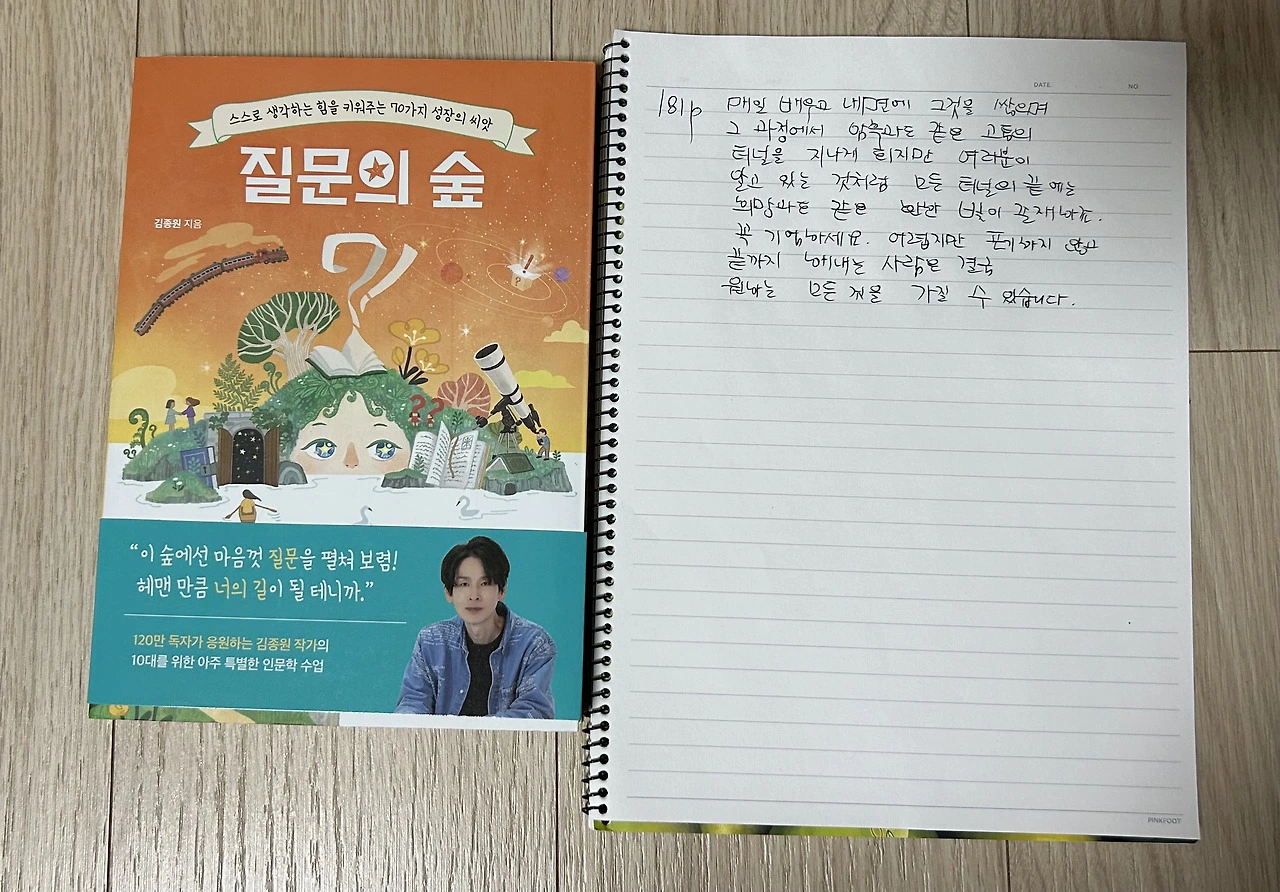 스스로 생각하는 힘을 키워주는 70가지 성장의 씨앗
질문의 숲
김종원 지음
“이 숲에선 마음껏 질문을 펼쳐 보렴!
헤맨 만큼 너의 길이 될 테니까.”
120만 독자가 응원하는 김종원 작가의
10대를 위한 아주 특별한 인문학 수업
DATE.
NO
181p 매일 배우고 내면에 그것을 쌓으며
그 과정에서 암흑과도 같은 고통의
터널을 지나게 되지만 여러분이
알고 있는 것처럼 모든 터널의 끝에는
희망과도 같은 환한 빛이 존재하죠.
꼭 기억하세요. 어렵지만 포기하지 않고
끝까지 해내는 사람은 결국
원하는 모든 것을 가질 수 있습니다.
PINKFOOT